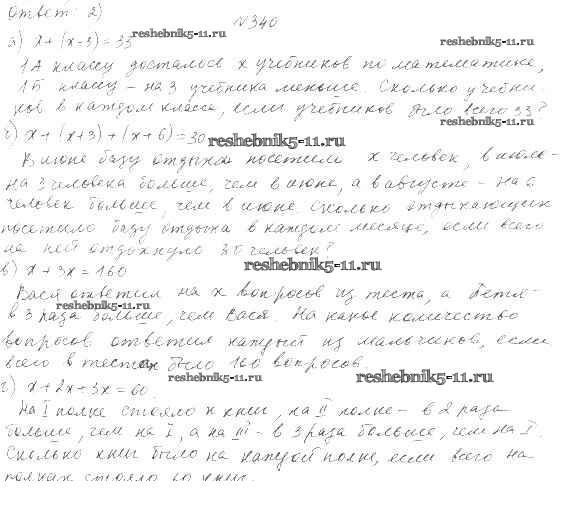 ответ: 2)
№340
а) x + (x-3) = 33
reshebnik5-11.ru
reshebnik5-11.ru
1А классу досталось x учебников по математике,
1Б классу – на 3 учебника меньше. Сколько учебни-
ков в каждом классе, если учебников было всего 33?
reshebnik5-11.ru
б) x + (x+3) + (x+6) = 30
reshebnik5-11.ru
В июне базу отдыха посетили x человек, в июле-
на 3 человека больше, чем в июне, а в августе – на 6
человек больше, чем в июне. Сколько отдыхающих
посетило базу отдыха в каждом месяце, если всего
на ней отдохнуло 30 человек?
reshebnik5-11.ru
в) x + 3x = 160
Вася ответил на x вопросов из теста, а Петя-
в 3 раза больше, чем Вася. На какое количество
reshebnik5-11.ru
вопросов ответил каждый из мальчиков, если
всего в тестах было 160 вопросов.
reshebnik5-11.ru
reshebnik5-11.ru
г) x + 2x + 3x = 60
На I полке стояло x книг, на II полке – в 2 раза
больше, чем на I, а на III – в 3 раза больше, чем на I.
Сколько книг было на каждой полке, если всего на
полках стояло 60 книг.